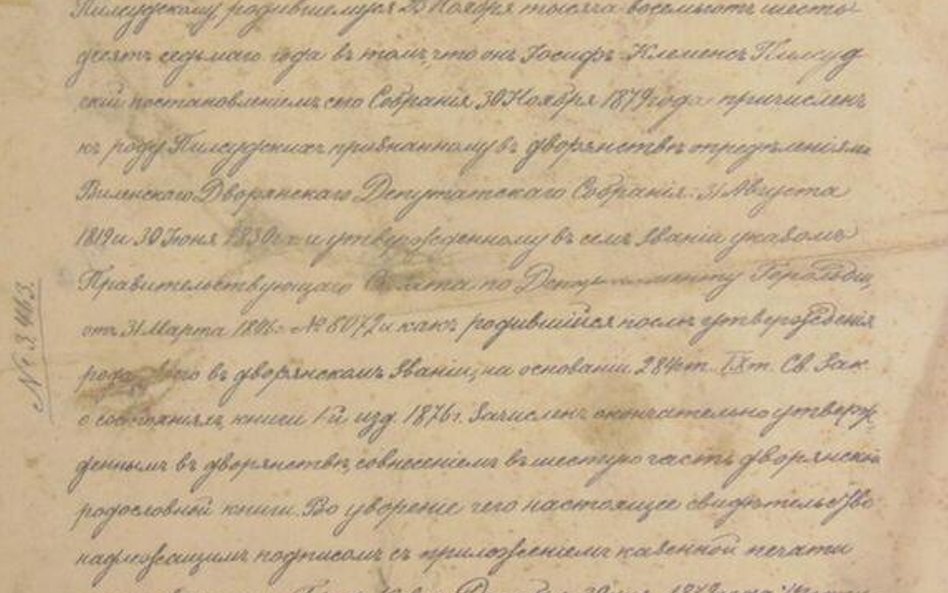 Пилсудскому, родившемуся 23 Ноября тысяча восемьсотъ шесть-
десятъ седьмаго года въ томъ, что онъ Іосифъ-Клеменсъ Пилсуд
скій постановленіемъ сего Собранія 30 Ноября 1879 года причисленъ
къ роду Пилсудскихъ признанному въ дворянствѣ опредѣленіями
Виленскаго Дворянскаго Депутатскаго Собранія: 31 Августа
1819 и 30 Іюня 1830 г. и утвержденному въ семъ званіи указомъ
Правительствующаго Сената по Департаменту Герольдіи,
отъ 31 Марта № 8072 и какъ родившійся послѣ утвержденія
рода его въ дворянскомъ званіи, на основаніи 284 ст. IX т. Св. Зак.
о состояніяхъ, книги 1-й изд. 1876 г. Зачисленъ окончательно утверж-
деннымъ въ дворянствѣ, со внесеніемъ въ шестую часть дворянской
родословной книги. Во увѣреніе чего настоящее свидѣтельство
надлежащимъ подписомъ съ приложеніемъ казенной печати
№ 3463.